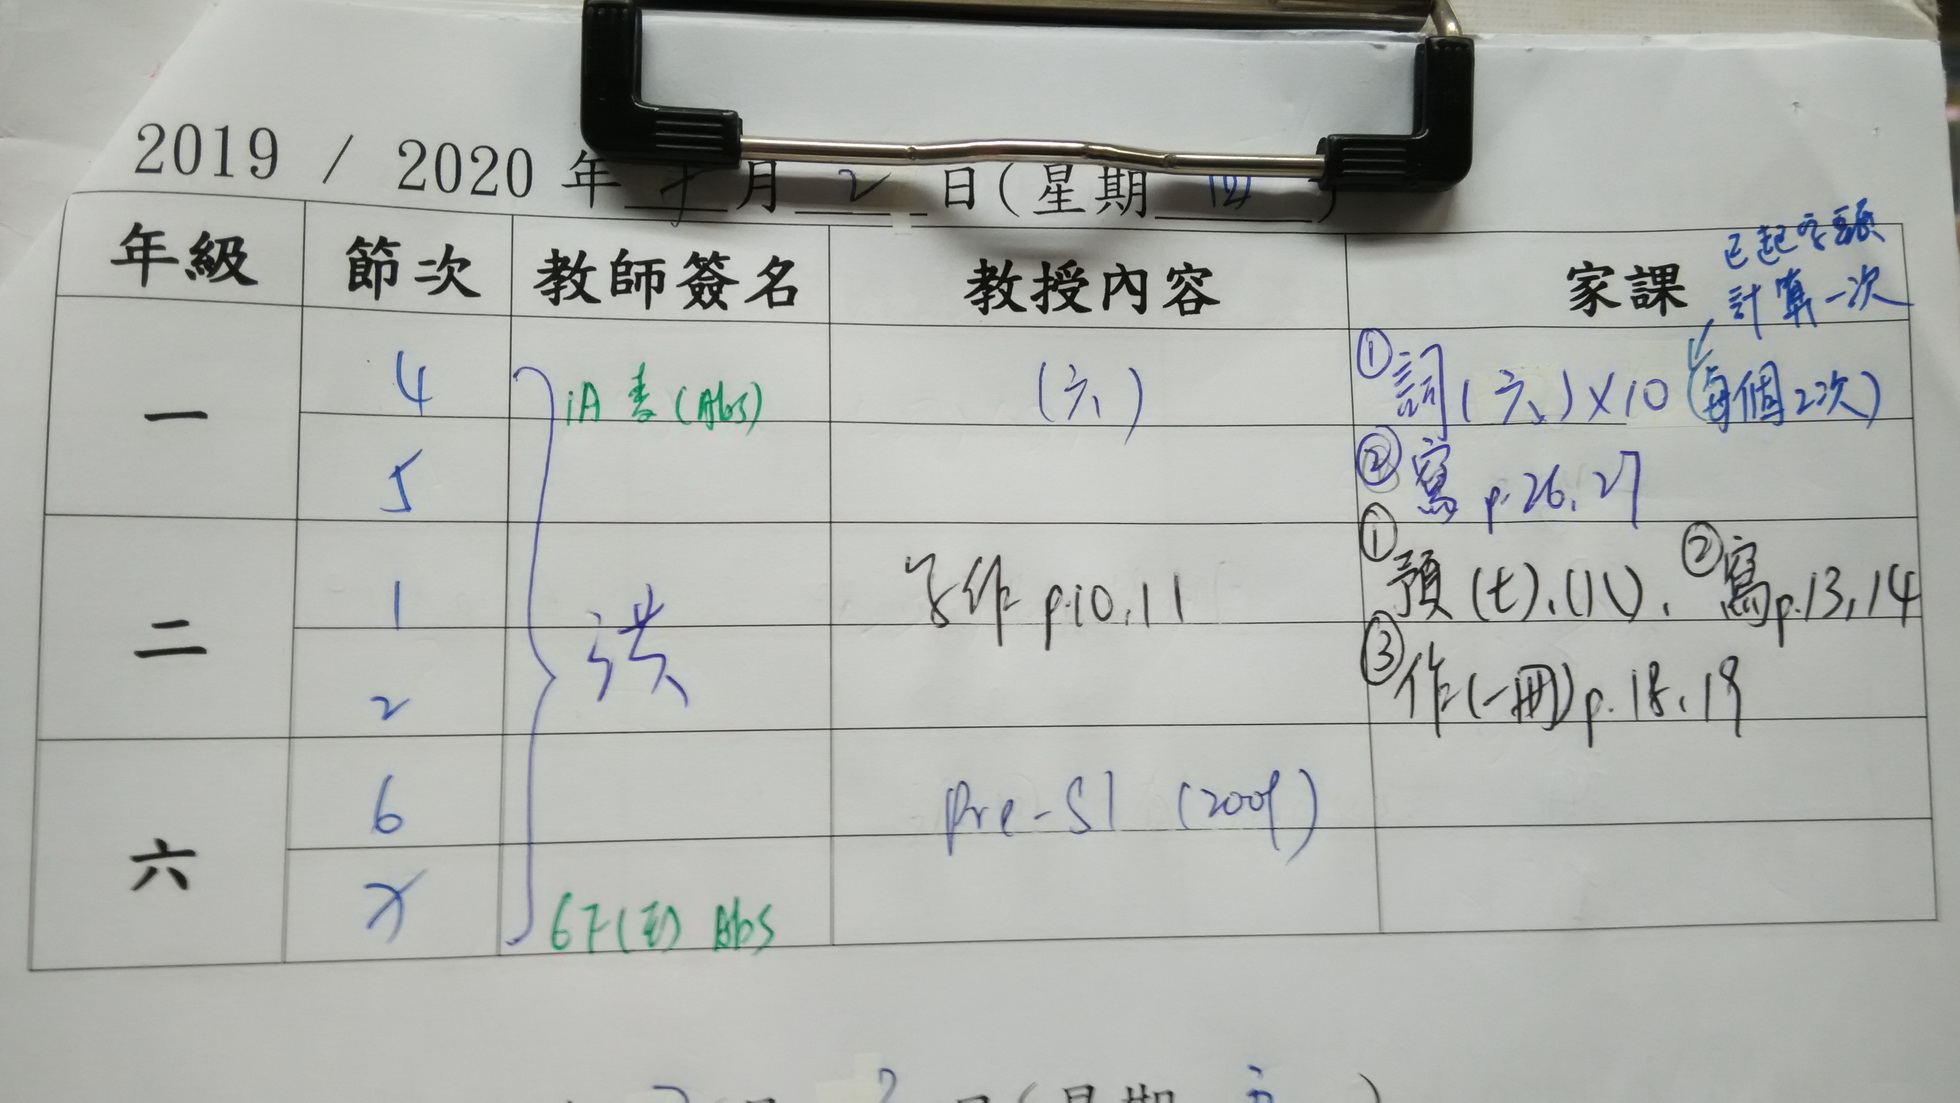 2019 / 2020 年 月 2 日(星期 四 )
年級 節次 教師簽名 教授內容 家課
已起字頭
計算一次
一 4 1A (Abs) (六) ①詞(六)×10 (每個2次)
5 ②寫 p.26,27
二 1 洪 作 p.10,11 ①預(七),(八), ②寫p.13,14
2 ③作(一冊)p.18,19
六 6 Pre-S1 (2009)
6F( ) Abs
月 日(星期 五 )